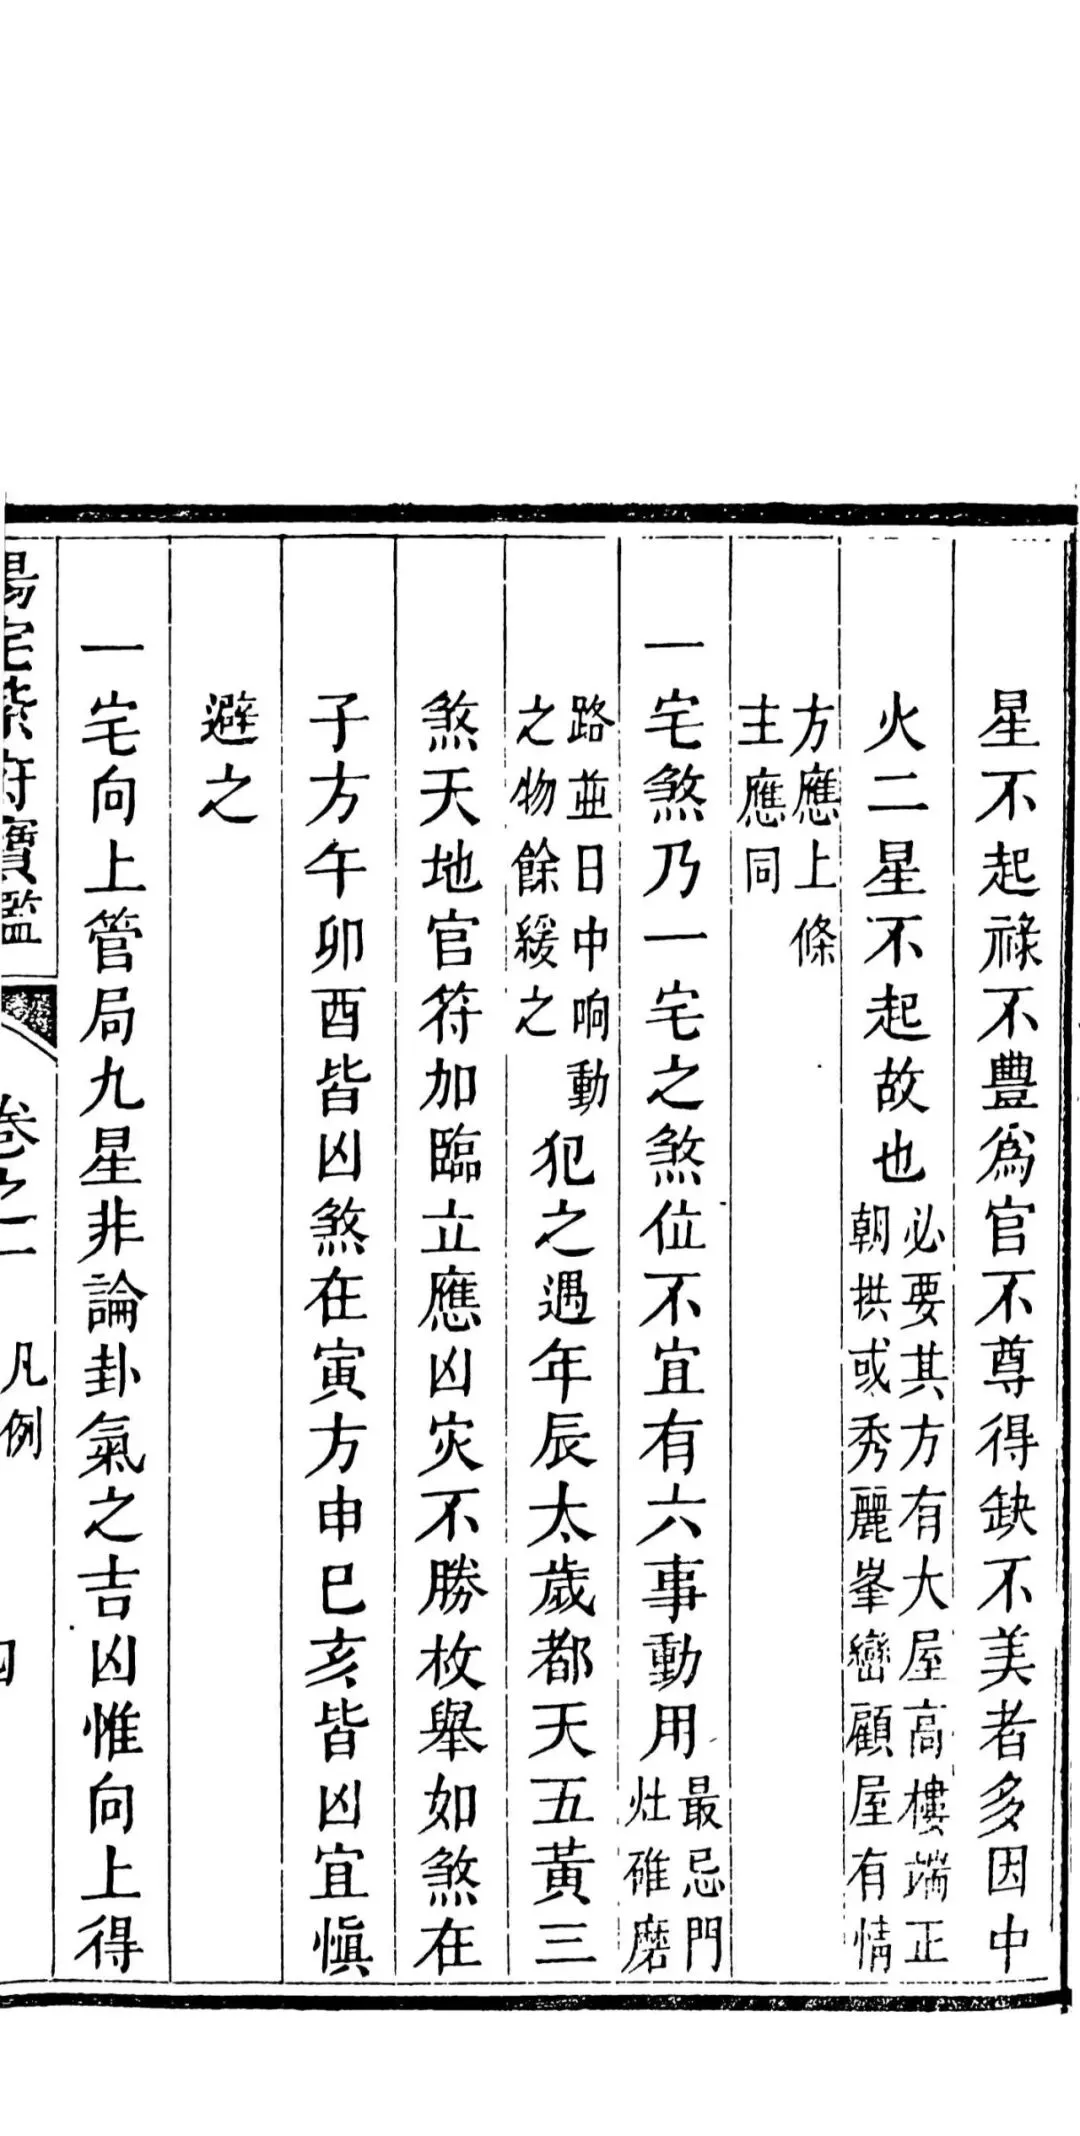 星不起祿不豐爲官不尊得缺不美者多因中
火二星不起故也
必要其方有大屋高樓端正
朝拱或秀麗峯巒顧屋有情
方應上條
主應同
一宅煞乃一宅之煞位不宜有六事動用
最忌門
灶碓磨
路並日中响動
之物餘緩之
犯之遇年辰太歲都天五黃三
煞天地官符加臨立應凶灾不勝枚舉如煞在
子方午卯酉皆凶煞在寅方申巳亥皆凶宜愼
避之
一宅向上管局九星非論卦氣之吉凶惟向上得
陽宅紫府寶鑑
卷之一
凡例
四